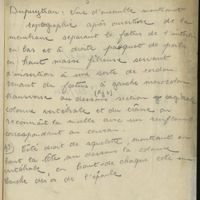 Dupuytren. Vue d'ensemble montrant
topographie après ouverture de la
membrane séparant le fœtus de l'intestin
en bas et à droite paquet de poils
en haut masse fibreuse servant
d'insertion à une sorte de cordon
venant du fœtus, à gauche mésocolon
transverse au dessous section
colonne vertébrale et du crâne, on
reconnaît la moelle avec un renflement
correspondant au cerveau.
Côté droit de squelette, montrant en
haut la tête au dessous la colonne
vertébrale, en haut de chaque côté une
de l'épaule